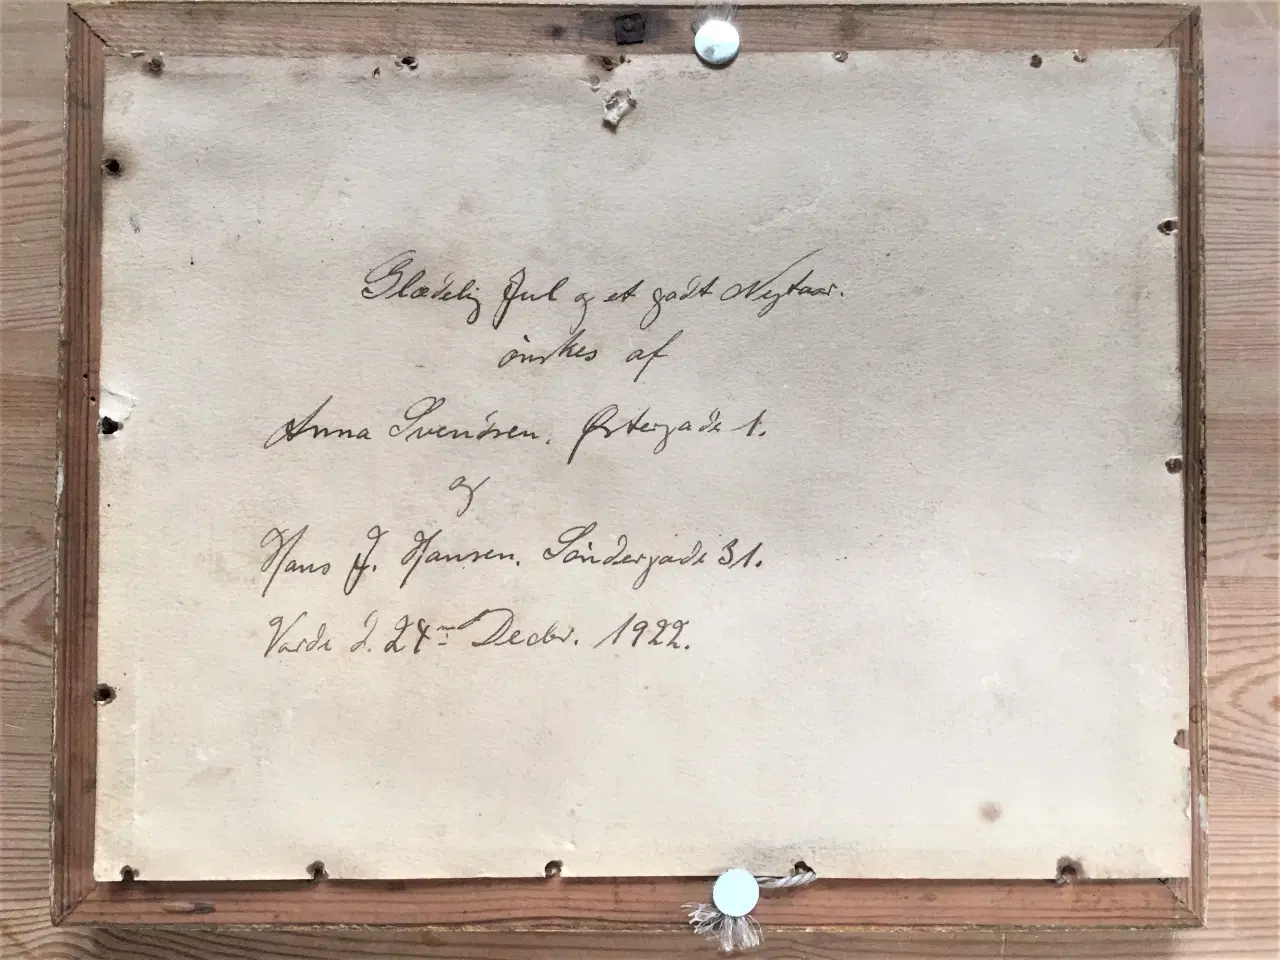 Glædelig Jul og et godt Nytaar.
ønskes af
Anna Svendsen. Østergade 1.
og
Hans J. Hansen. Söndergade 31.
Varde d. 24= Decbr. 1922.